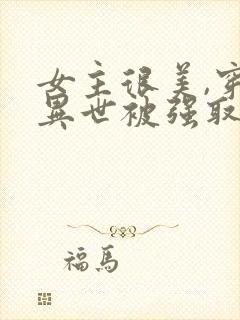 女主很美,穿
異世被强取
福馬